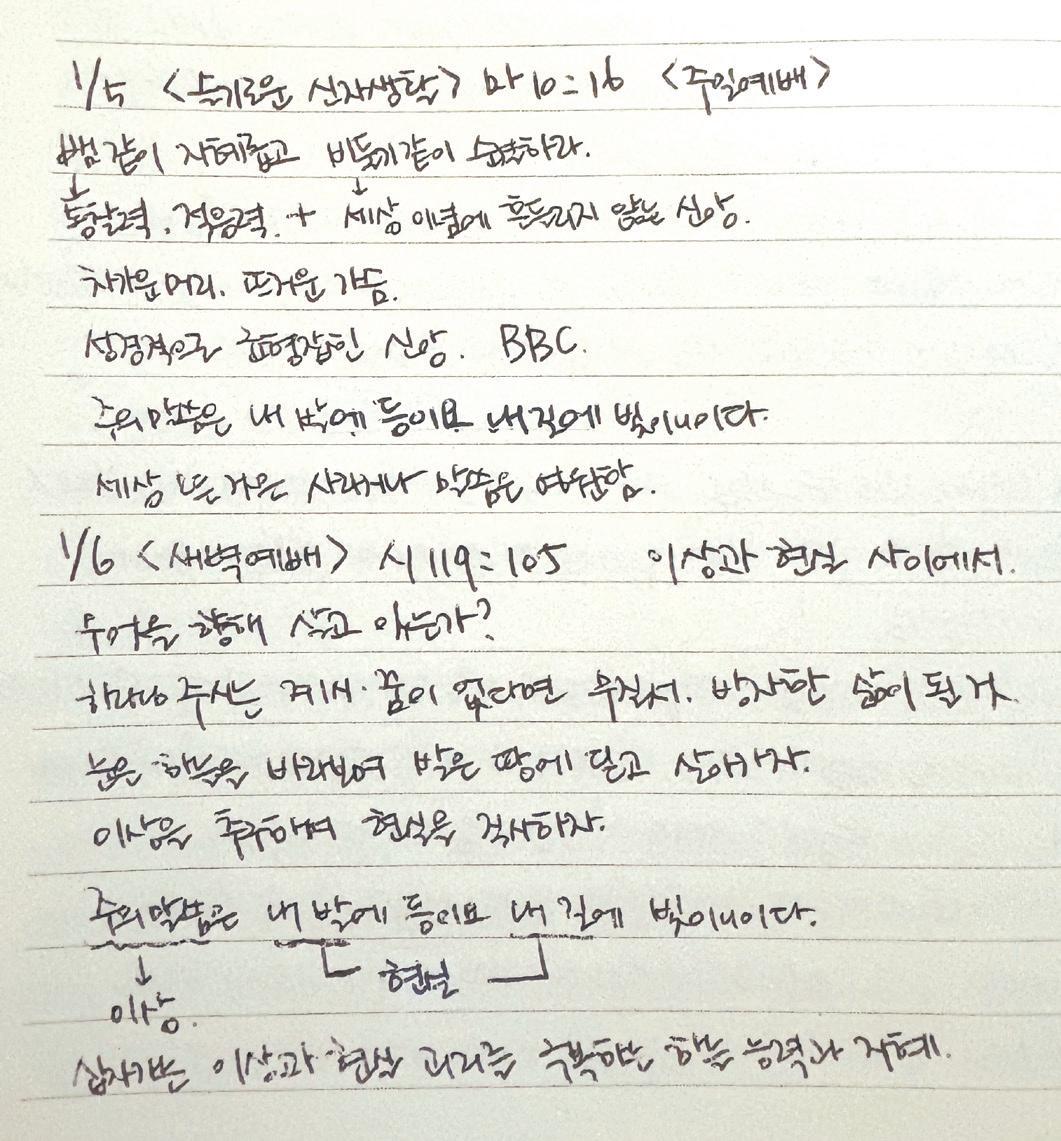 1/5 <슬기로운 신자생활> 마 10:16 <주일예배>
뱀 같이 지혜롭고 비둘기같이 순결하라.
↓ ↓
통찰력. 적응력. + 세상 이념에 흔들리지 않는 신앙.
차가운 머리. 뜨거운 가슴.
성경적으로 균형잡힌 신앙. BBC.
주의 말씀은 내 발에 등이요 내 길에 빛이니이다.
세상 모든 것은 사라져나 말씀은 영원함.
1/6 <새벽예배> 시 119:105 이상과 현실 사이에서.
무엇을 향해 살고 있는가?
하나님 주시는 계시·꿈이 없다면 무질서. 방자한 삶이 될 것.
높은 하늘을 바라보며 발은 땅에 딛고 살아가자.
이상을 추구하며 현실을 직시하자.
주의 말씀은 내 발에 등이요 내 길에 빛이니이다.
↓ 현실
이상.
십자가는 이상과 현실 괴리를 극복하는 하늘 능력과 지혜.